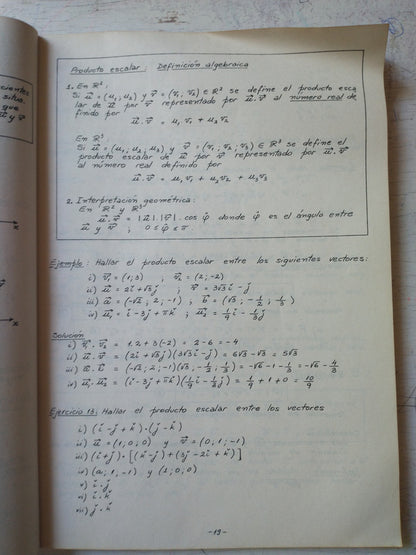 cientes
situa.
que
u⃗ y v⃗
x
x
Producto escalar: Definición algebraica
1. En ℝ²:
Si u⃗ = (u₁, u₂) y v⃗ = (v₁, v₂) ∈ ℝ² se define el producto esca
lar de u⃗ por v⃗ representado por u⃗.v⃗ al número real de
finido por
u⃗.v⃗ = u₁v₁ + u₂v₂
En ℝ³:
Si u⃗ = (u₁, u₂, u₃) y v⃗ = (v₁, v₂, v₃) ∈ ℝ³ se define el
producto escalar de u⃗ por v⃗ representado por u⃗.v⃗
al número real definido por
u⃗.v⃗ = u₁v₁ + u₂v₂ + u₃v₃
2. Interpretación geométrica:
En ℝ² y ℝ³
u⃗.v⃗ = |u⃗|.|v⃗|.cos φ donde φ es el ángulo entre
u⃗ y v⃗, 0 ≤ φ ≤ π
Ejemplo: Hallar el producto escalar entre los siguientes vectores:
i) v⃗₁ = (1;3) v⃗₂ = (2;-2)
ii) u⃗ = 2i+√3j ; v⃗ = 3√3i-j
iii) a⃗ = (-√2; 2; -1), b⃗ = (√3; -1/2; 1/3)
iv) u⃗₁ = i-3j+πk ; u⃗₂ = 1/9 i - 1/3 j
Solución
i) v⃗₁.v⃗₂ = 1.2+3(-2) = 2-6 = -4
ii) u⃗.v⃗ = (2i+√3j)(3√3i-j) = 6√3-√3 = 5√3
iii) a⃗.b⃗ = (-√2; 2; -1)(√3; -1/2; 1/3) = -√6-1-1/3 = -√6-4/3
iv) u⃗₁.u⃗₂ = (i-3j+πk)(1/9 i - 1/3 j) = 1/9+1+0 = 10/9
Ejercicio 13: Hallar el producto escalar entre los vectores
i) (i-j+k).(j-k)
ii) u⃗ = (1;0;0) y v⃗ = (0;1;-1)
iii) (i+j).[(k-j)+(3j-2i+k)]
iv) (a;1;-1) y (2;0;0)
v) i.j
vi) i.k
vii) j.k
-19-